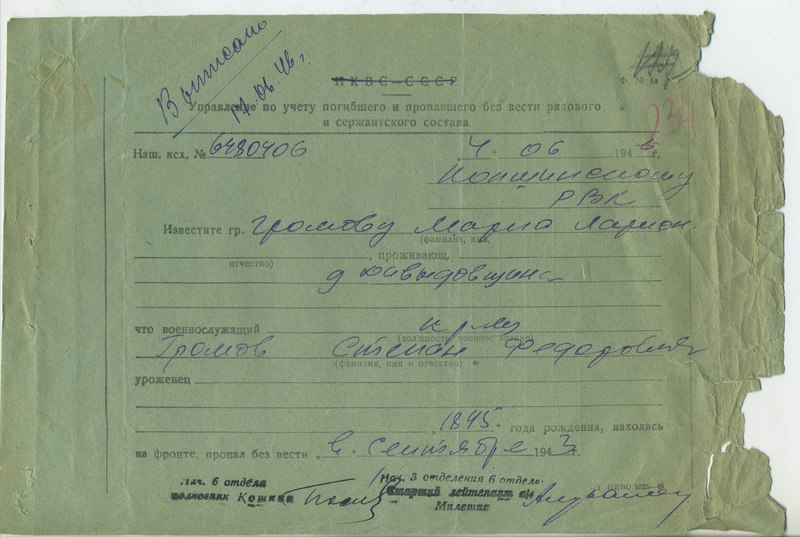 Выписано
17.06.46 г.
НКВС-СССР
Ф. № 4а
Управление по учету погибшего и пропавшего без вести рядового
и сержантского состава
234
Наш. исх. № 6480406 4 06 1946 г.
РВК
Известите гр. Громову Мария Ларион.
(фамилия, имя,
, проживающ.
отчество)
д
что военнослужащий
(должность, военное звание)
Громов Степан Федорович
(фамилия, имя и отчество)
уроженец
1895 года рождения, находясь
на фронте, пропал без вести в сентябре 1943 г.
Нач. 6 отдела
полковник Кошкин
Нач. 3 отделения 6 отдела
Старший лейтенант а/с
Милешин